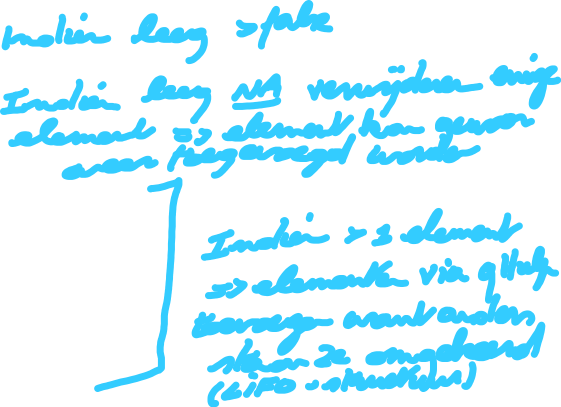 Indien leeg => false
Indien leeg NA verwijderen enig
element => element kan gewoon
weer toegevoegd worden
Indien > 1 element
=> elementen via qHulp
toevoegen want anders
staan ze omgekeerd
(LIFO-structuur)